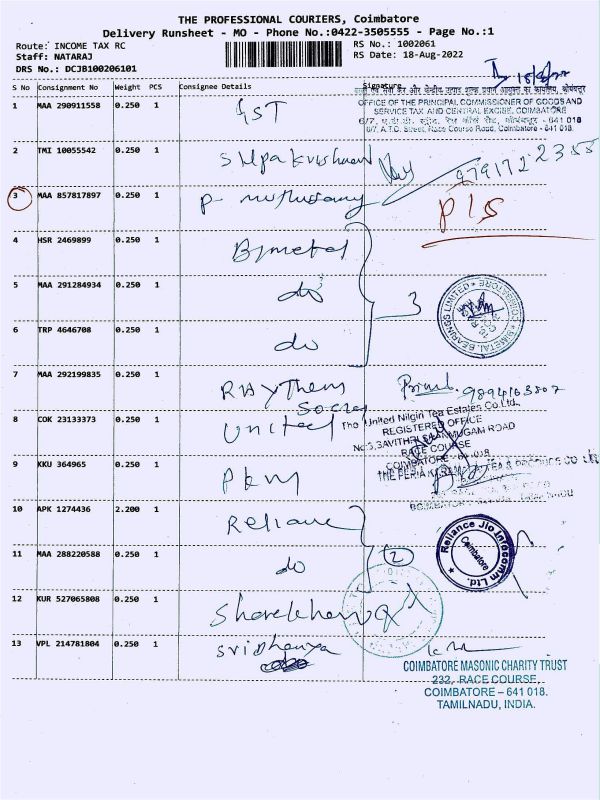 THE PROFESSIONAL COURIERS, Coimbatore
Delivery Runsheet - MO - Phone No.:0422-3505555 - Page No.:1
Route: INCOME TAX RC RS No.: 1002061
Staff: NATARAJ RS Date: 18-Aug-2022
DRS No.: DCJB100206101
S No Consignment No Weight PCS Consignee Details Signature
1 MAA 290911558 0.250 1 GST
OFFICE OF THE PRINCIPAL COMMISSIONER OF GOODS AND
SERVICE TAX AND CENTRAL EXCISE, COIMBATORE
6/7, A.T.D. Street, Race Course Road, Coimbatore - 641 018.
2 TMI 10055542 0.250 1
3 MAA 857817897 0.250 1 P-
4 HSR 2469899 0.250 1 Bimetal
5 MAA 291284934 0.250 1 do 3
BIMETAL BEARINGS LIMITED * COIMBATORE *
6 TRP 4646708 0.250 1 do
7 MAA 292199835 0.250 1
8 COK 23133373 0.250 1 United
The United Nilgiri Tea Estates Co.Ltd.,
REGISTERED OFFICE
No.3,SAVITHRI SHANMUGAM ROAD
RACE COURSE
COIMBATORE - 641 018
9 KKU 364965 0.250 1 PKM
10 APK 1274436 2.200 1 Reliance
11 MAA 288220588 0.250 1 do 2
Reliance Jio Infocomm Ltd. ★
Coimbatore
12 KUR 527065808 0.250 1 Sharekhan
13 VPL 214781804 0.250 1 Sridhanya
COIMBATORE MASONIC CHARITY TRUST
232, RACE COURSE,
COIMBATORE – 641 018.
TAMILNADU, INDIA.